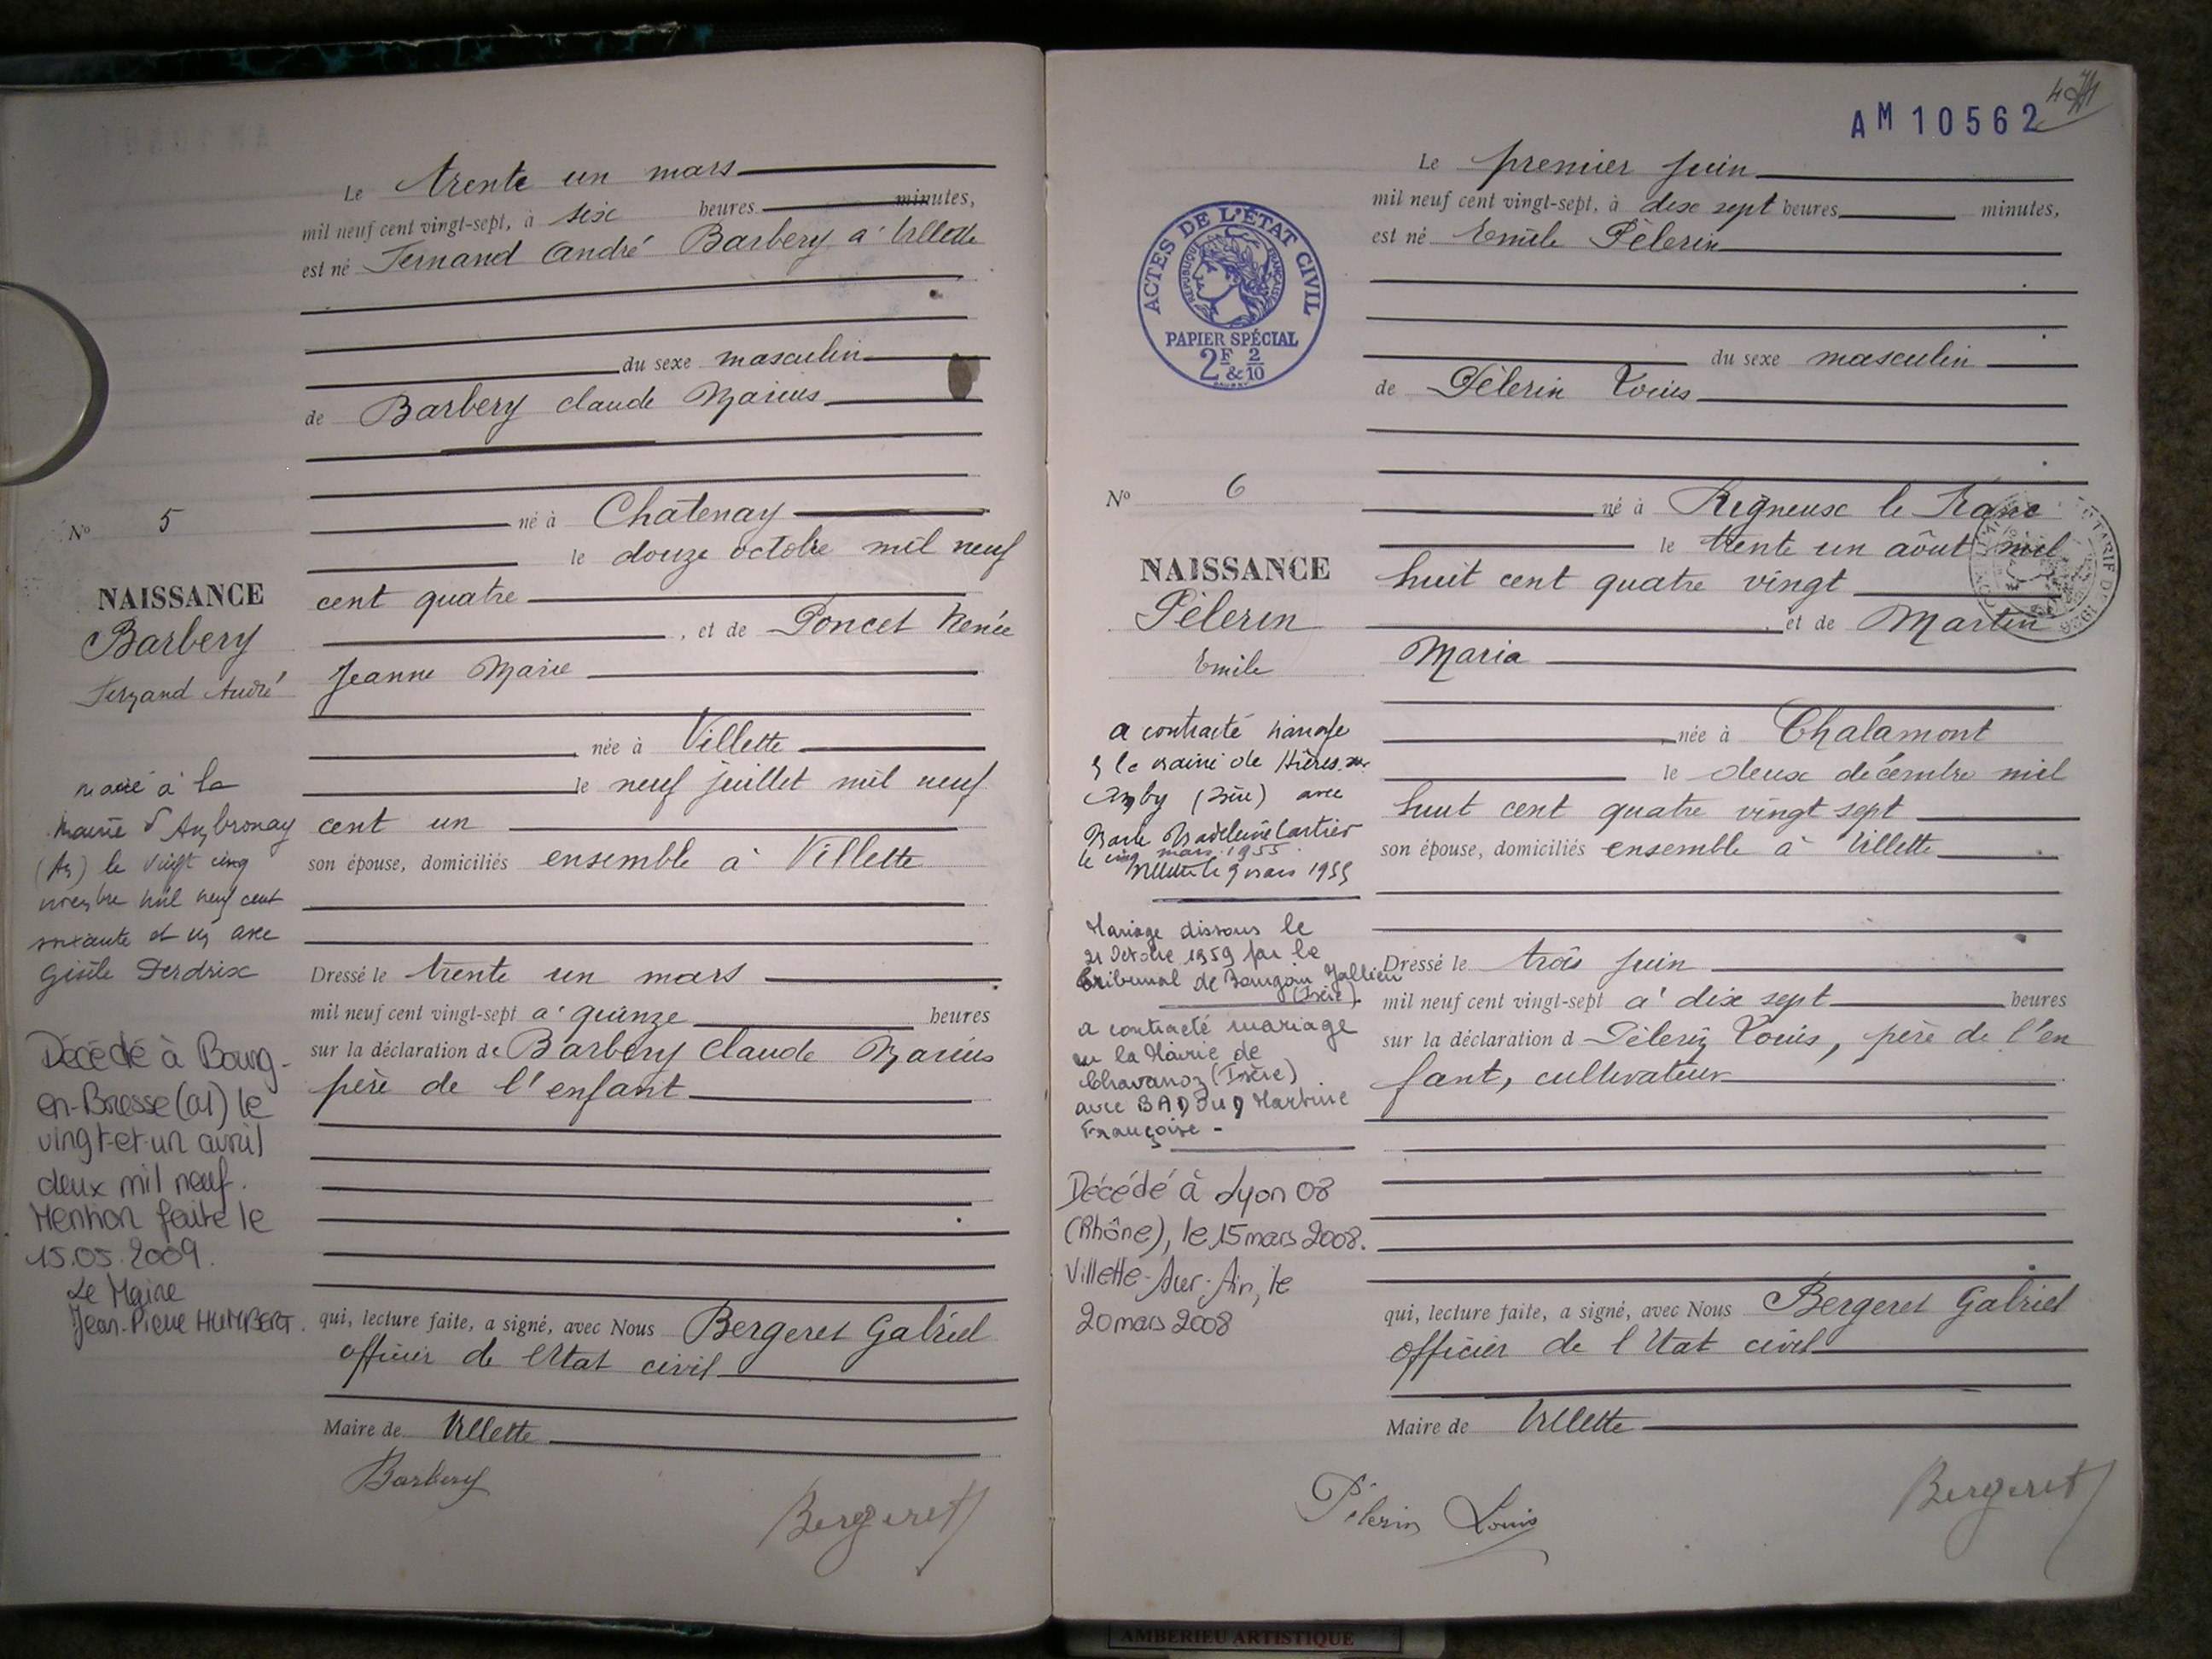 Le trente un mars
mil neuf cent vingt-sept, à six heures minutes,
est né Fernand André Barbery a' Villette
du sexe masculin
de Barbery claude Marius
né à Chatenay
le douze octobre mil neuf
cent quatre
, et de Poncet Renée
Jeanne Marie
née à Villette
le neuf juillet mil neuf
cent un
son épouse, domiciliés ensemble à Villette
Dressé le trente un mars
mil neuf cent vingt-sept a' quinze heures
sur la déclaration de Barbery Claude Marius
père de l'enfant
qui, lecture faite, a signé, avec Nous Bergeret Gabriel
officier de l'Etat civil
Maire de Villette
Barbery
Bergeret
No 5
NAISSANCE
Barbery
Fernand André
marié à la
Mairie d'Ambronay
(Ain) le vingt cinq
novembre mil neuf cent
soixante et un avec
Gisèle Perdrix
Décédé à Bourg-
en-Bresse (01) le
vingt-et-un avril
deux mil neuf.
Mention faite le
15.05.2009.
Le Maire
Jean-Pierre HUMBERT.
AM 10562
4
Le premier juin
mil neuf cent vingt-sept, à dix sept heures minutes,
est né Emile Pèlerin
du sexe masculin
de Pèlerin Louis
né à Rigneux le Franc
le trente un août mil
huit cent quatre vingt
et de Martin
Maria
née à Chalamont
le deux décembre mil
huit cent quatre vingt sept
son épouse, domiciliés ensemble à Villette
Dressé le trois juin
mil neuf cent vingt-sept a' dix sept heures
sur la déclaration d Pèlerin Louis, père de l'en
fant, cultivateur
qui, lecture faite, a signé, avec Nous Bergeret Gabriel
officier de l'Etat civil
Maire de Villette
Pèlerin Louis
Bergeret
ACTES DE L'ÉTAT CIVIL
RÉPUBLIQUE FRANÇAISE
PAPIER SPÉCIAL
2F & 2/10
No 6
NAISSANCE
Pèlerin
Emile
a contracté mariage
à la mairie de Hières-sur-
Amby (Isère) avec
Marie Madeleine Cartier
le cinq mars 1955.
Villette le 9 mars 1955
Mariage dissous le
21 Octobre 1959 par le
tribunal de Bourgoin Jallieu
(Isère).
a contracté mariage
en la Mairie de
Chavanoz (Isère)
avec BADJUD Martine
Françoise -
Décédé à Lyon 08
(Rhône), le 15 mars 2008.
Villette-sur-Ain, le
20 mars 2008
AMBERIEU ARTISTIQUE